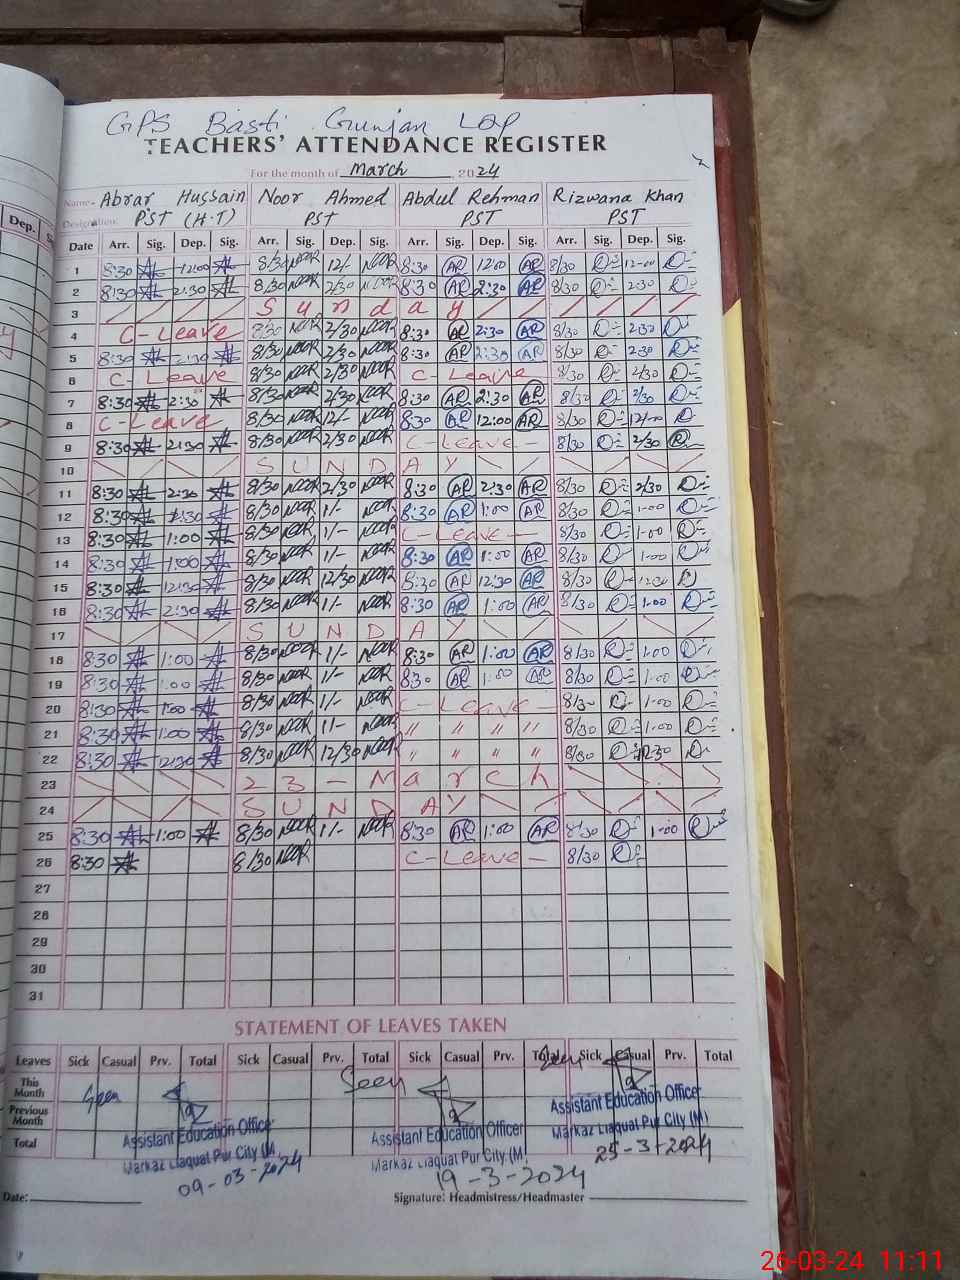 GPS Basti Gunjan LQP
TEACHERS' ATTENDANCE REGISTER
For the month of March, 2024
Name- Abrar Hussain Noor Ahmed Abdul Rehman Rizwana Khan
Designation: PST (H.T) PST PST PST
Dep.
Date Arr. Sig. Dep. Sig. Arr. Sig. Dep. Sig. Arr. Sig. Dep. Sig. Arr. Sig. Dep. Sig.
1 8:30 12:00 8/30 NOOR 12/- NOOR 8:30 AR 12:00 AR 8/30 12-00
2 8:30 2:30 8/30 NOOR 2/30 NOOR 8:30 AR 2:30 AR 8/30 2-30
3 Sunday
4 C-Leave 8/30 NOOR 2/30 NOOR 8:30 AR 2:30 AR 8/30 2:30
5 8:30 2:30 8/30 NOOR 2/30 NOOR 8:30 AR 2:30 AR 8/30 2-30
6 C-Leave 8/30 NOOR 2/30 NOOR C-Leave 8/30 2/30
7 8:30 2:30 8/30 NOOR 2/30 NOOR 8:30 AR 2:30 AR 8/30 2/30
8 C-Leave 8/30 NOOR 12/- NOOR 8:30 AR 12:00 AR 8/30 12/-00
9 8:30 2:30 8/30 NOOR 2/30 NOOR C-Leave- 8/30 2/30
10 SUNDAY
11 8:30 2:30 8/30 NOOR 2/30 NOOR 8:30 AR 2:30 AR 8/30 2/30
12 8:30 8/30 NOOR 1/- NOOR 8:30 AR 1:00 AR 8/30 1-00
13 8:30 1:00 8/30 NOOR 1/- NOOR C-Leave- 8/30 1-00
14 8:30 1:00 8/30 NOOR 1/- NOOR 8:30 AR 1:00 AR 8/30 1-00
15 8:30 12:30 8/30 NOOR 12/30 NOOR 8:30 AR 12:30 AR 8/30
16 8:30 2:30 8/30 NOOR 1/- NOOR 8:30 AR 1:00 AR 8/30 1-00
17 SUNDAY
18 8:30 1:00 8/30 NOOR 1/- NOOR 8:30 AR 1:00 AR 8/30 1-00
19 8:30 1:00 8/30 NOOR 1/- NOOR 8:30 AR 1:00 AR 8/30 1-00
20 8:30 1:00 8/30 NOOR 1/- NOOR C-Leave- 8/30 1-00
21 8:30 1:00 8/30 NOOR 1/- NOOR " " " " 8/30 1-00
22 8:30 12:30 8/30 NOOR 12/30 NOOR " " " " 8/30 12:30
23 23-March
24 SUNDAY
25 8:30 1:00 8/30 NOOR 1/- NOOR 8:30 AR 1:00 AR 8/30 1-00
26 8:30 8/30 NOOR C-Leave- 8/30
27
28
29
30
31
STATEMENT OF LEAVES TAKEN
Leaves Sick Casual Prv. Total Sick Casual Prv. Total Sick Casual Prv. Total Sick Casual Prv. Total
This Month Seen Seen Seen
Previous Month
Total
Assistant Education Officer
Markaz Liaquat Pur City (M
09-03-2024
Assistant Education Officer
Markaz Liaquat Pur City (M
19-3-2024
Assistant Education Officer
Markaz Liaquat Pur City (M)
25-3-2024
Date: Signature: Headmistress/Headmaster
26-03-24 11:11